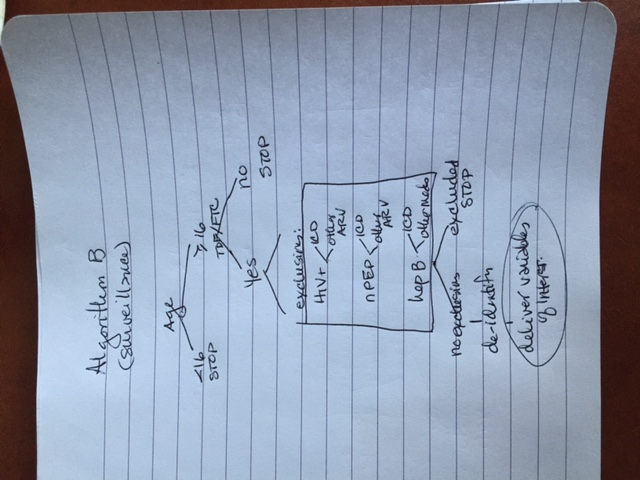 Algorithm B
(surveillance)
Age
<16 ≥16
STOP TDF/FTC
Yes no
STOP
exclusions:
HIV+ < ICD
other
ARV
nPEP < ICD
other
ARV
hep B < ICD
other meds
no exclusions excluded
STOP
de-identify
deliver variables
of interest.